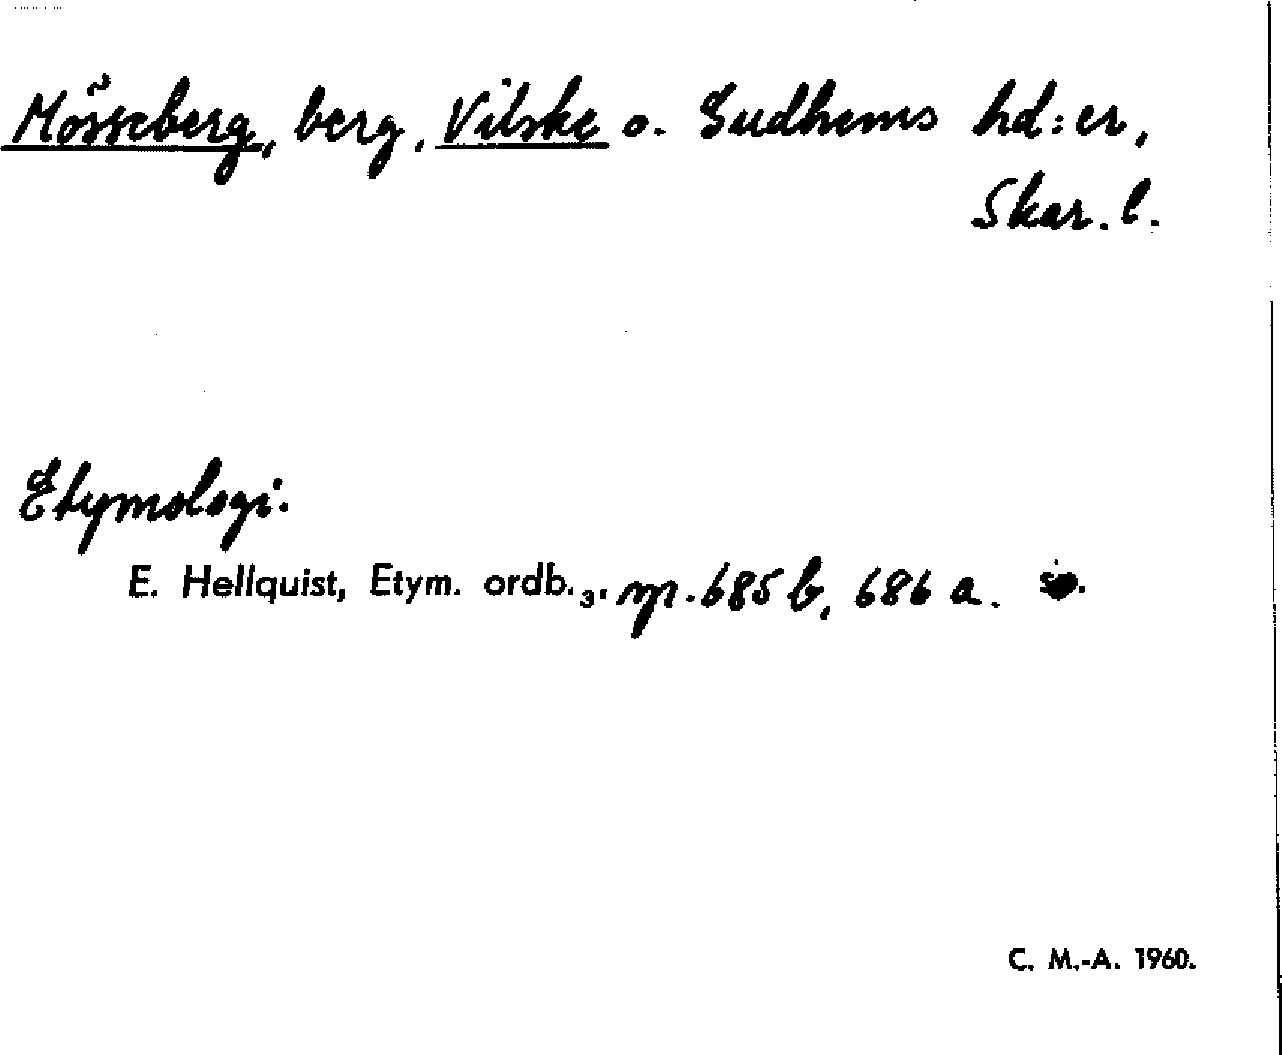 Mösseberg, berg, Vilske o. Gudhems hd:er,
Skar. l.
Etymologi.
E. Hellquist, Etym. ordb.₃, sp. 685 b, 686 a.
C. M.-A. 1960.